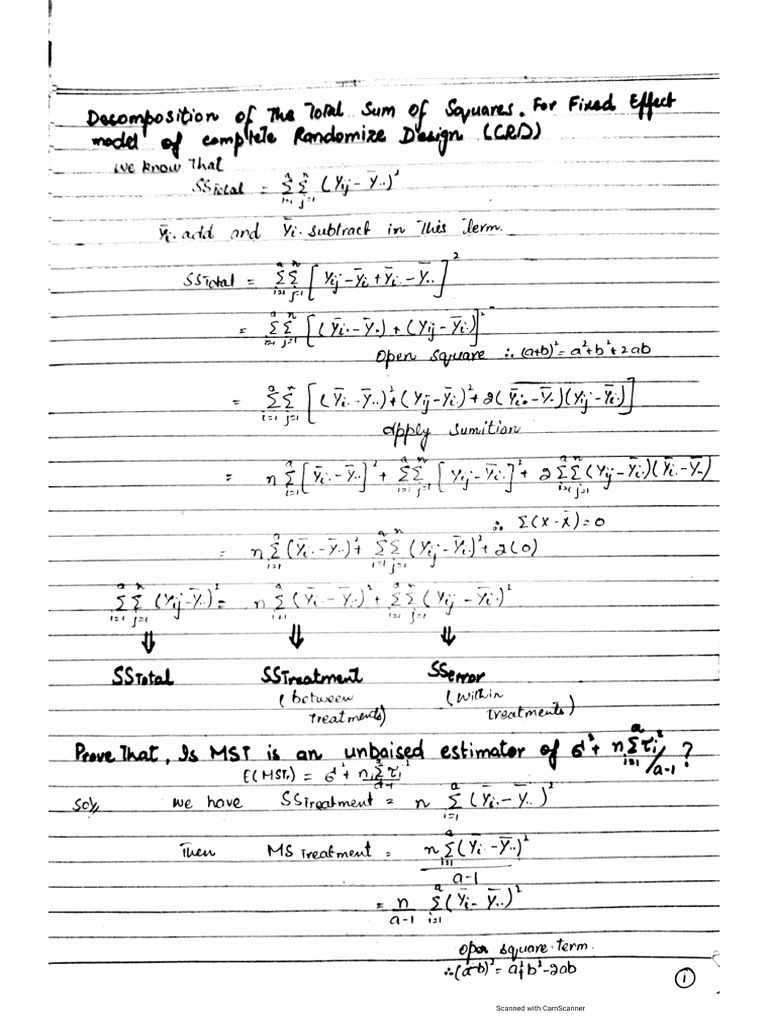 Decomposition of The Total Sum of Squares. For Fixed Effect
model of complete Randomize Design (CRD)
we know that
SSTotal = a∑i=1 n∑j=1 (Yij - Ȳ..)²
Ȳi. add and Ȳi. subtract in This Term.
SSTotal = a∑i=1 n∑j=1 [Yij - Ȳi. + Ȳi. - Ȳ..]²
= a∑i=1 n∑j=1 [(Ȳi. - Ȳ..) + (Yij - Ȳi.)]²
open square ∴ (a+b)² = a²+b²+2ab
= a∑i=1 n∑j=1 [(Ȳi. - Ȳ..)² + (Yij - Ȳi.)² + 2(Ȳi. - Ȳ..)(Yij - Ȳi.)]
apply sumition
= n a∑i=1 [Ȳi. - Ȳ..]² + a∑i=1 n∑j=1 [Yij - Ȳi.]² + 2 a∑i=1 n∑j=1 (Yij - Ȳi.)(Ȳi. - Ȳ..)
∴ Σ(X - X̄) = 0
= n a∑i=1 (Ȳi. - Ȳ..)² + a∑i=1 n∑j=1 (Yij - Ȳi.)² + 2(0)
a∑i=1 n∑j=1 (Yij - Ȳ..)² = n a∑i=1 (Ȳi. - Ȳ..)² + a∑i=1 n∑j=1 (Yij - Ȳi.)²
⇓ ⇓ ⇓
SSTotal SSTreatment SSerror
(between treatments) (within treatments)
Prove That, Is MST is an unbaised estimator of σ² + n a∑i=1 τi² / a-1 ?
E(MSTr) = σ² + n a∑i=1 τi² / a-1
Sol// we have SSTreatment = n a∑i=1 (Ȳi. - Ȳ..)²
Then MS Treatment = n a∑i=1 (Ȳi. - Ȳ..)² / a-1
= n / a-1 a∑i=1 (Ȳi. - Ȳ..)²
open square term.
∴ (a-b)² = a²+b²-2ab
1
Scanned with CamScanner